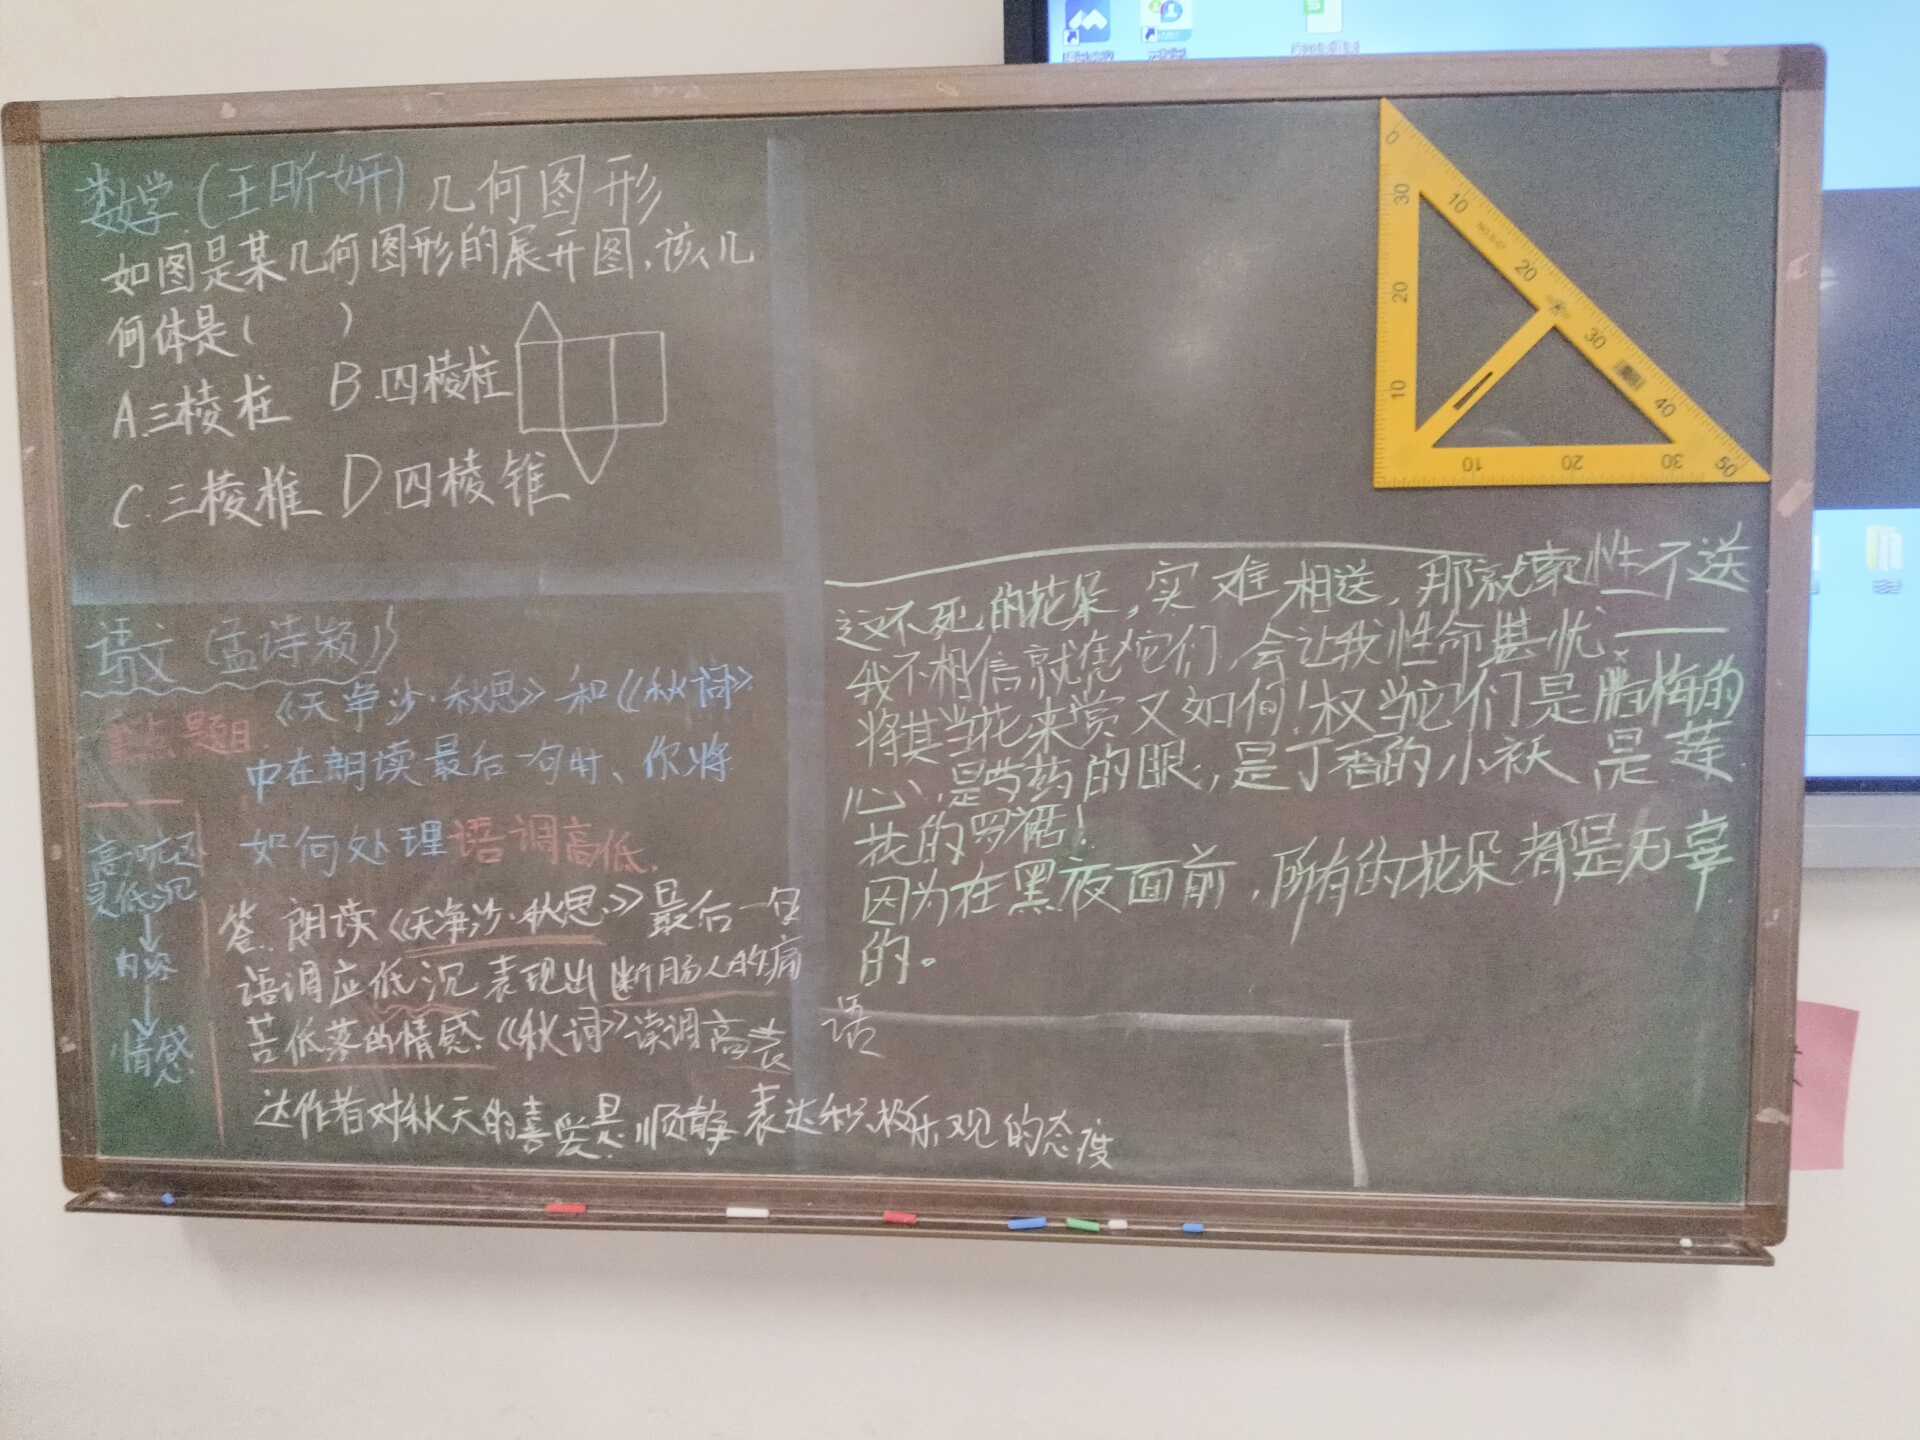 数学(王昕妍) 几何图形
如图是某几何图形的展开图,该几
何体是( )
A.三棱柱 B.四棱柱
C.三棱椎 D四棱锥
语文(孟诗颖)
重点题目
《天净沙·秋思》和《秋词》
中在朗读最后一句时、你将
如何处理语调高低.
高亢还
是低沉
↓
内容
↓
情感
答.朗读《天净沙·秋思》最后一句
语调应低沉 表现出断肠人的痛
苦低落的情感.《秋词》读调高表
达作者对秋天的喜爱 表达积极乐观的态度
语
这不死的花朵,实难相送,那就索性不送
我不相信就凭它们,会让我性命堪忧
将其当花来赏又如何!权当它们是腊梅的
心,是芍药的眼,是丁香的小袄 是莲
花的罗裙!
因为在黑夜面前,所有的花朵都是无辜
的。
0 10 20 30 40 50
30 20 10
10 20 30